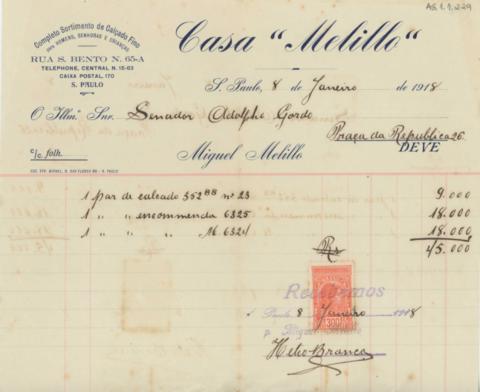 AG.1.1.229
Completo Sortimento de Calçado Fino
PARA HOMENS, SENHORAS E CRIANÇAS
RUA S. BENTO N. 65-A
TELEPHONE, CENTRAL N. 15-63
CAIXA POSTAL, 170
S. PAULO
Casa "Melillo"
S. Paulo, 8 de Janeiro de 1918
O Illmo. Snr. Senador Adolpho Gordo
Praça da Republica 26
c/c folh. Miguel Melillo DEVE
1 par de calcado 352 nº 23 9.000
1 " " encommenda 6325 18.000
1 " " " 6324 18.000
Rs 45.000
Recebemos
S. Paulo 8 Janeiro 1918
p. Miguel Melillo
300
Helio Branca